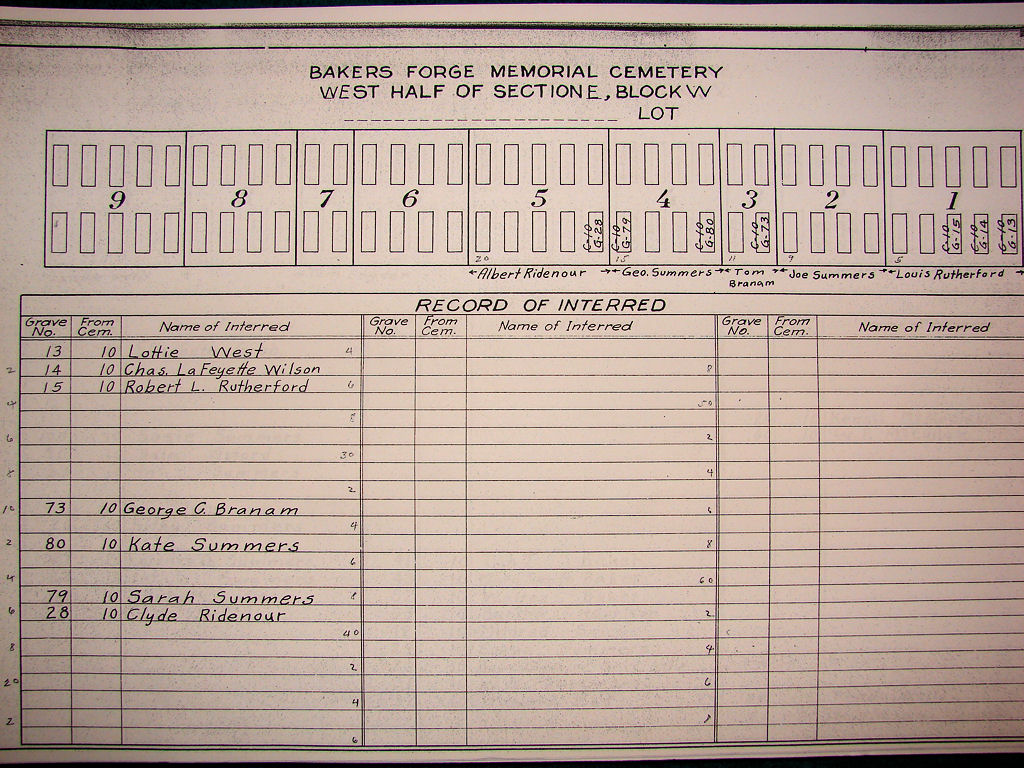 BAKERS FORGE MEMORIAL CEMETERY
WEST HALF OF SECTION E, BLOCK W
LOT
9 8 7 6 5 4 3 2 1
C-10 G-28 C-10 G-79 C-10 G-80 C-10 G-73 C-10 G-15 C-10 G-14 C-10 G-13
20 15 11 9 5
Albert Ridenour Geo. Summers Tom Branam Joe Summers Louis Rutherford
RECORD OF INTERRED
Grave No. From Cem. Name of Interred Grave No. From Cem. Name of Interred Grave No. From Cem. Name of Interred
13 10 Lottie West 4
2 14 10 Chas. LaFeyette Wilson 8
15 10 Robert L. Rutherford 6
4 50
8
6 2
30
8 4
2
10 73 10 George C. Branam 6
4
2 80 10 Kate Summers 8
6
4 60
79 10 Sarah Summers 8
6 28 10 Clyde Ridenour 2
40
8 4
2
20 6
4
2 8
6